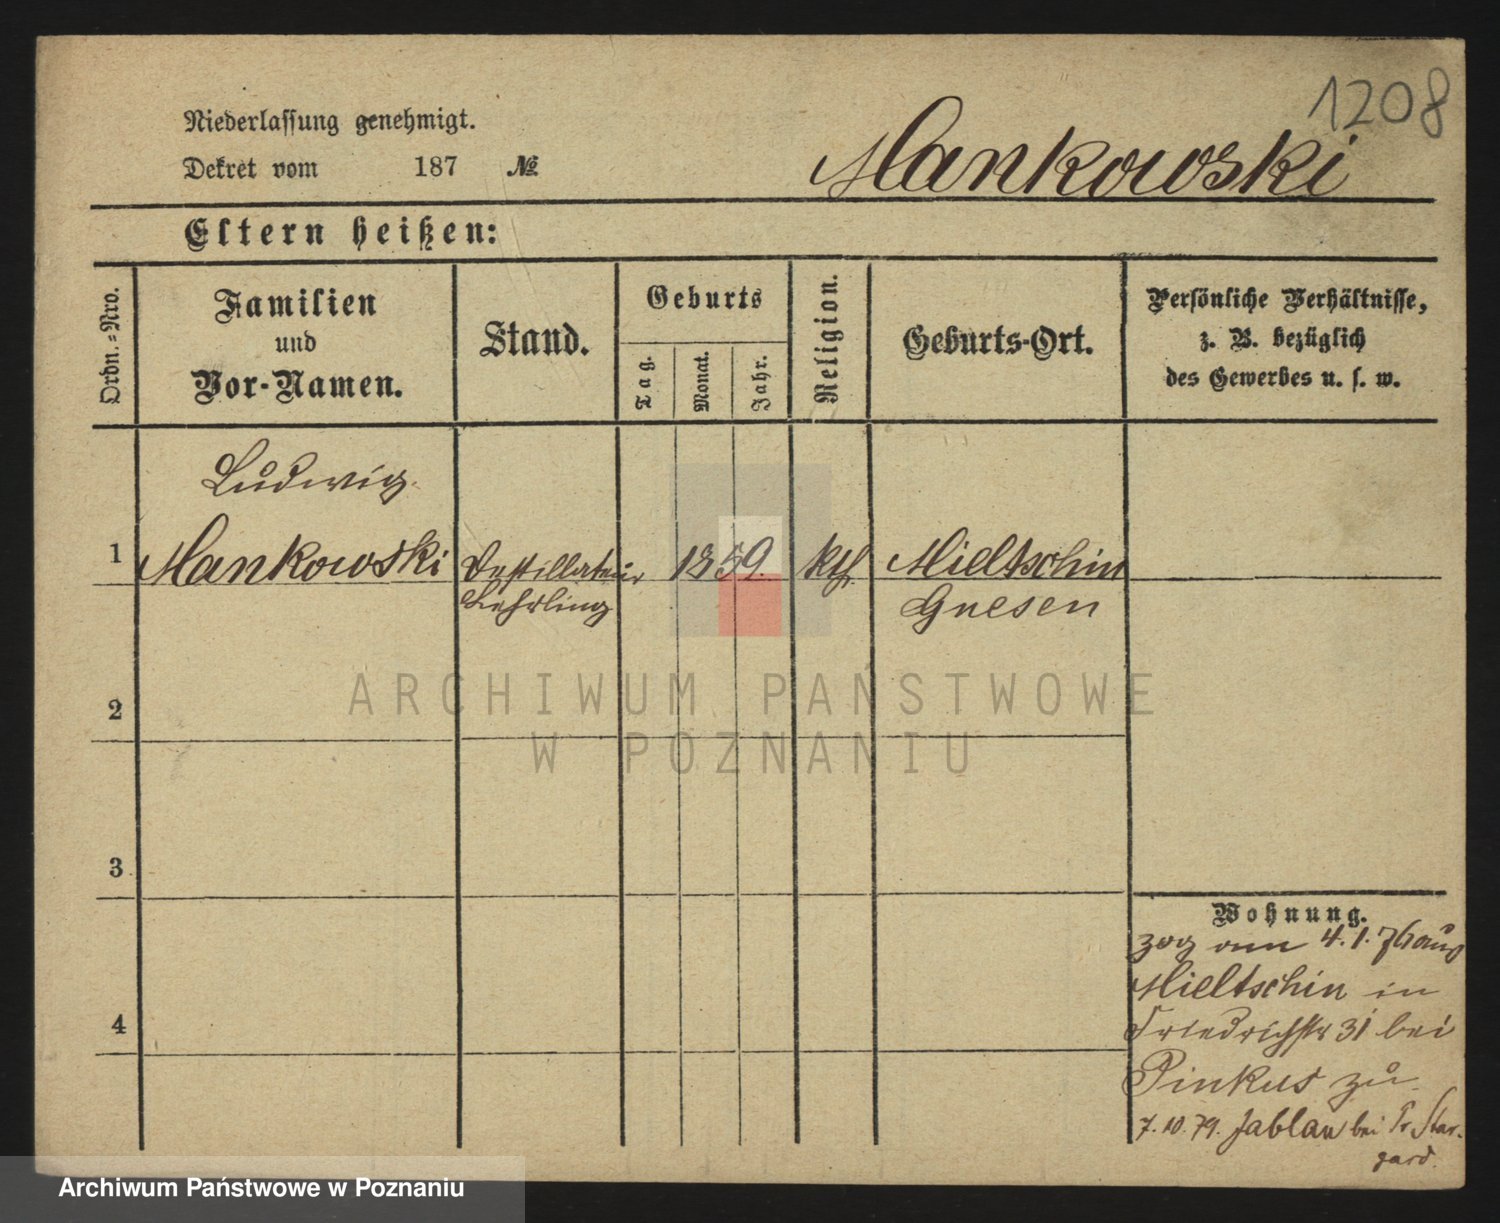 1208
Niederlassung genehmigt.
Dekret vom 187 №
Mankowski
Eltern heißen:
Ordn.=Nro.
Familien
und
Vor-Namen.
Stand.
Geburts
Tag.
Monat.
Jahr.
Religion.
Geburts-Ort.
Persönliche Verhältnisse,
z. B. bezüglich
des Gewerbes u. s. w.
Ludwig
1 Mankowski Destillateur 1859. kth. Mieltschin
Lehrling Gnesen
2
ARCHIWUM PAŃSTWOWE
W POZNANIU
3
Wohnung.
zog am 4.1.76 aus
Mieltschin in
4
Friedrichstr 31 bei
Pinkus zu
7.10.79. Jablau bei Pr Star-
gard.
Archiwum Państwowe w Poznaniu